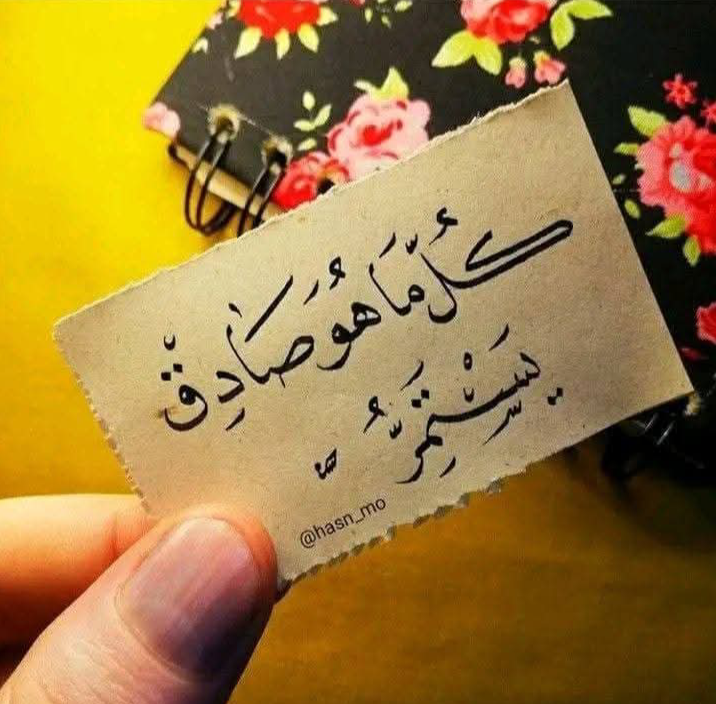 كُلُّ مَا هُوَ صَادِقٌ
يَسْتَمِرُّ
@hasn_mo